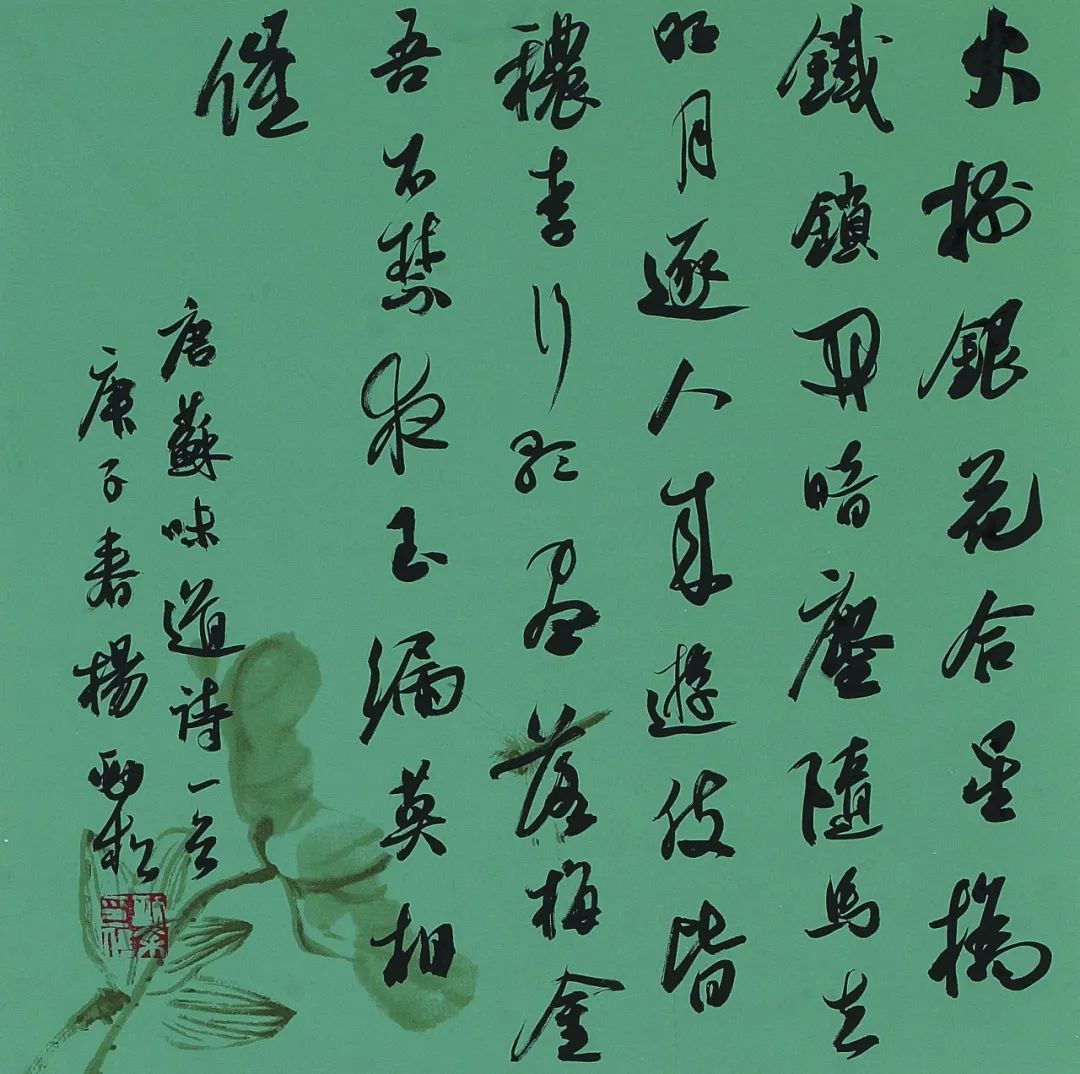 火樹銀花合星橋
鐵鎖開暗塵隨馬去
明月逐人來遊伎皆
穠李行歌盡落梅金
吾不禁夜玉漏莫相
催
唐蘇味道詩一首
庚子春楊勁松